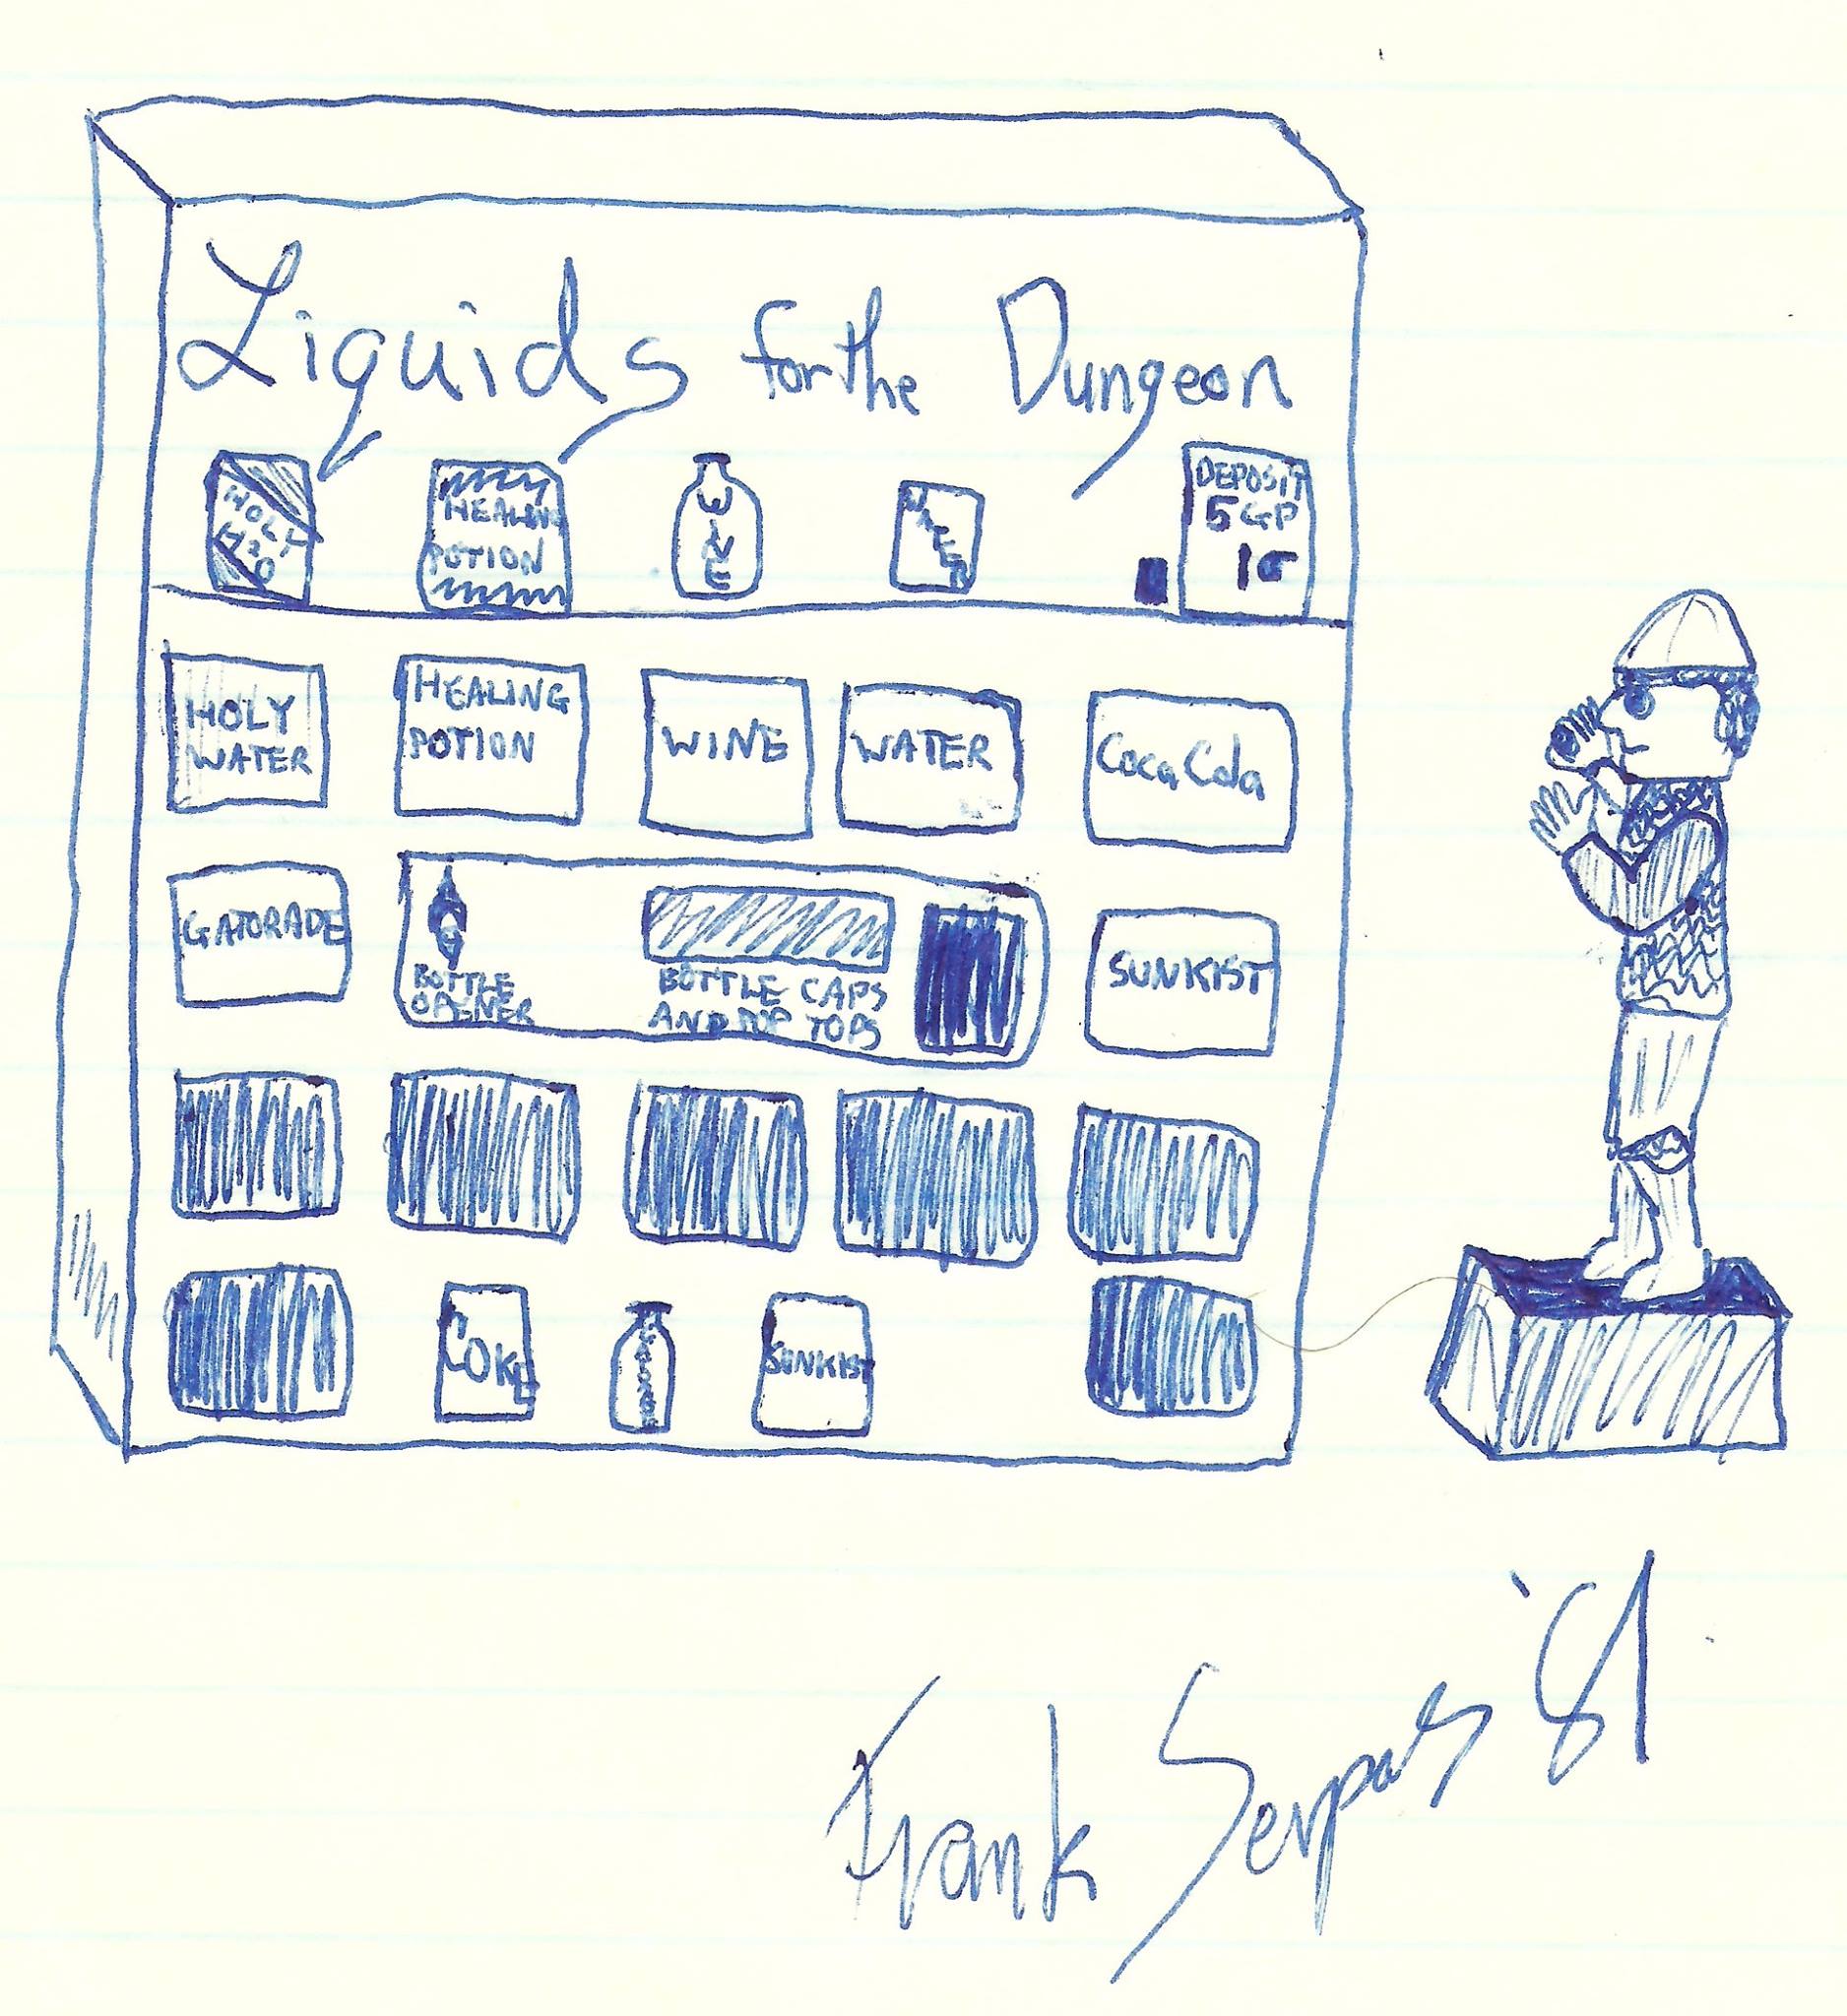 Liquids for the Dungeon
HOLY
H2O
HEALING
POTION
WINE
WATER
DEPOSIT
5 GP
HOLY
WATER
HEALING
POTION
WINE
WATER
Coca Cola
GATORADE
BOTTLE
OPENER
BOTTLE CAPS
AND POP TOPS
SUNKIST
COKE
SUNKIST
Frank Serpas '81